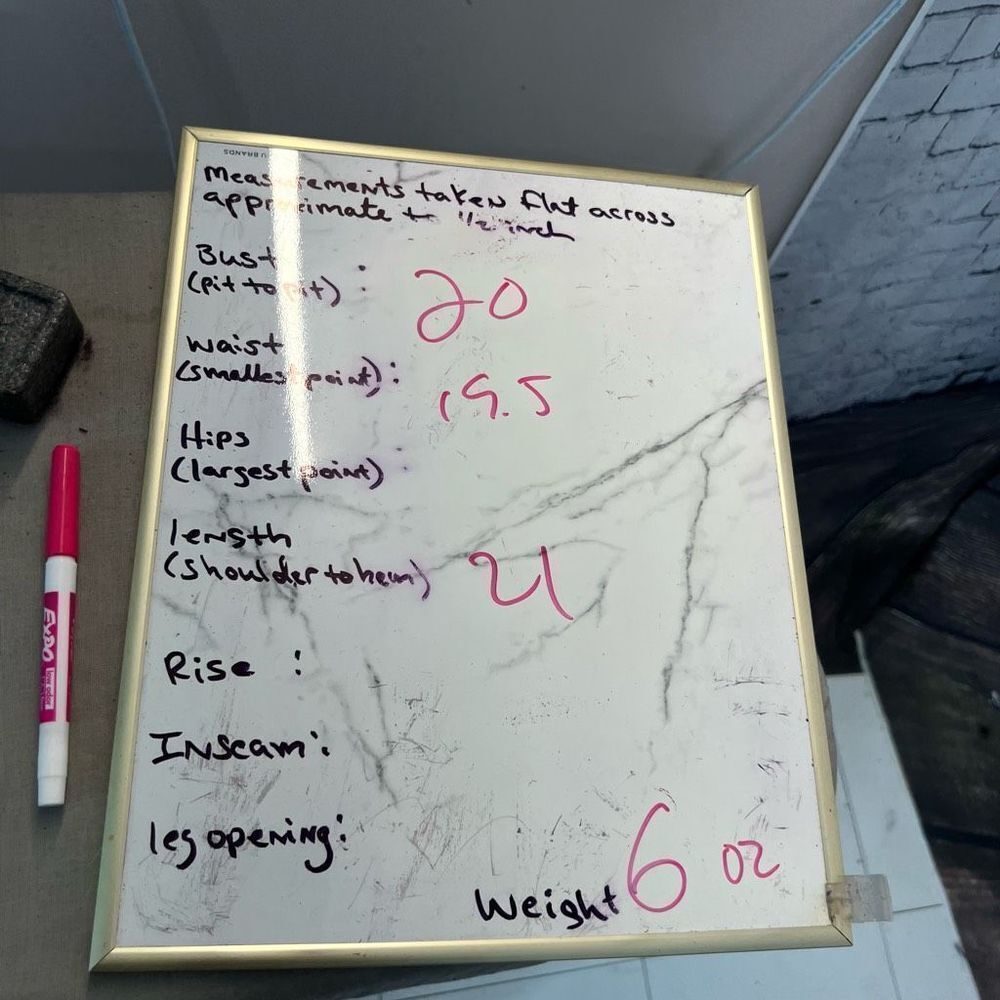 U BRANDS
Measurements taken flat across
approximate to 1/2 inch
Bust
(pit to pit) : 20
waist
(smallest point) : 19.5
Hips
(largest point)
length
(shoulder to hem) 21
Rise :
Inseam :
leg opening :
Weight 6 oz
EXPO
low odor